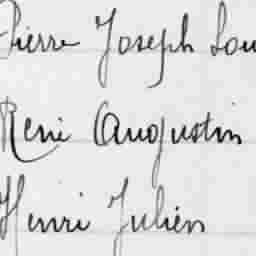 Pierre Joseph Lou
René Augustin
Henri Julien